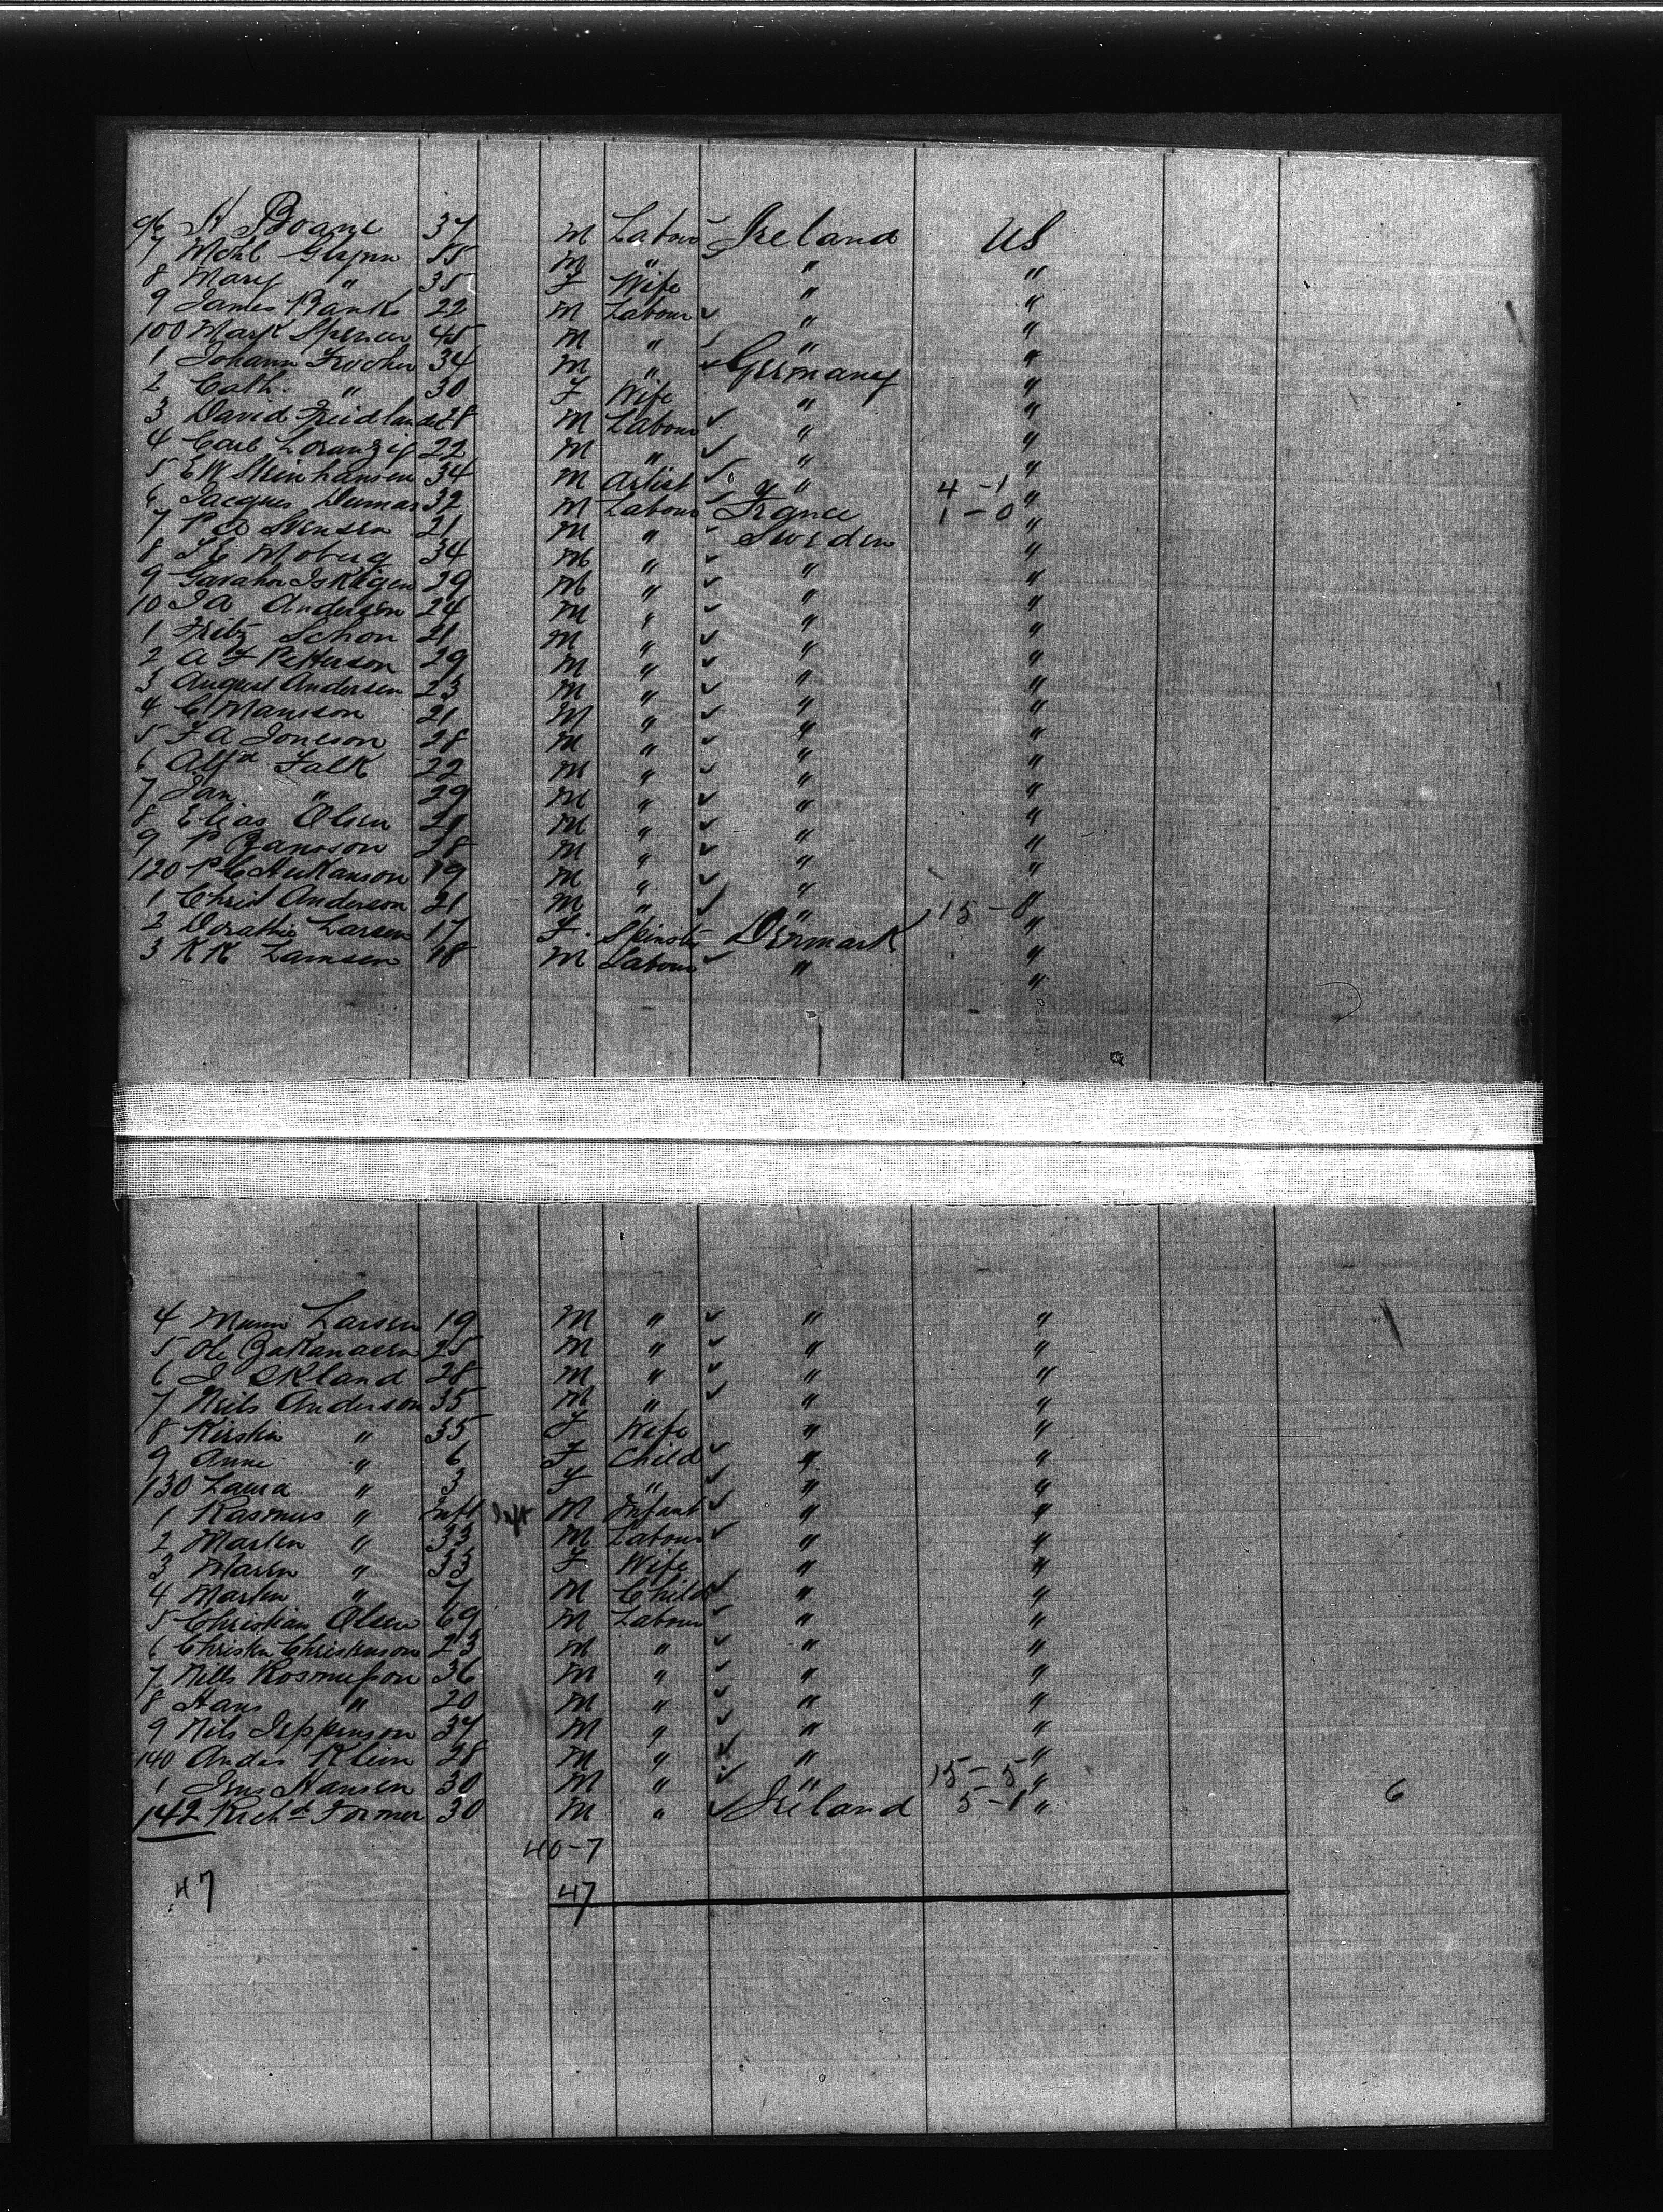 96 H Boane 37 M Labour Ireland US
7 Mchl Glynn 55 M " " "
8 Mary " 35 F Wife " "
9 James Bank 22 M Labour " "
100 Mark Spencer 45 M " " "
1 Johann Frocher 34 M " Germany "
2 Cath. " 30 F Wife " "
3 David Freidlander 28 M Labour " "
4 Carl Loranzig 22 M " " "
5 E W Steinhausen 34 M Artist " 4-1 "
6 Jacques Dumas 32 M Labour France 1-0 "
7 P O Svensen 21 M " Sweden "
8 J E Moberg 34 M " " "
9 29 M " " "
10 J A Anderson 24 M " " "
1 Fritz Schon 21 M " " "
2 A F Petterson 29 M " " "
3 August Andersen 23 M " " "
4 C Mansson 21 M " " "
5 F A Joneson 28 M " " "
6 Alfd Falk 22 M " " "
7 Jan " 29 M " " "
8 Elias Olsen 21 M " " "
9 P Bansson 28 M " " "
120 P C Hukanson 19 M " " "
1 Christ Anderson 21 M " " 15-8 "
2 Dorathe Larsen 17 F. Spinster Denmark "
3 K K Lamsen 18 M Labour " "
4 Larsen 19 M " " "
5 Ole Zakanasen 25 M " " "
6 J Ekland 28 M " " "
7 Neils Anderson 35 M " " "
8 Kirstin " 35 F Wife " "
9 Anne " 6 F Child " "
130 Laura " 3 F " " "
1 Rasmus " Inft Inft M Infant " "
2 Marten " 33 M Labour " "
3 Maren " 33 F Wife " "
4 Marten " 7 M Child " "
5 Christian Olsen 69 M Labour " "
6 Christen Christenson 23 M " " "
7 Nells Rosmusson 36 M " " "
8 Hans " 20 M " " "
9 Nils Jeppenson 37 M " " "
140 Andes Klein 28 M " " "
1 Jens Hansen 30 M " " 15-5 "
142 Richd Former 30 M " Ireland 5-1 " 6
40-7
47 47